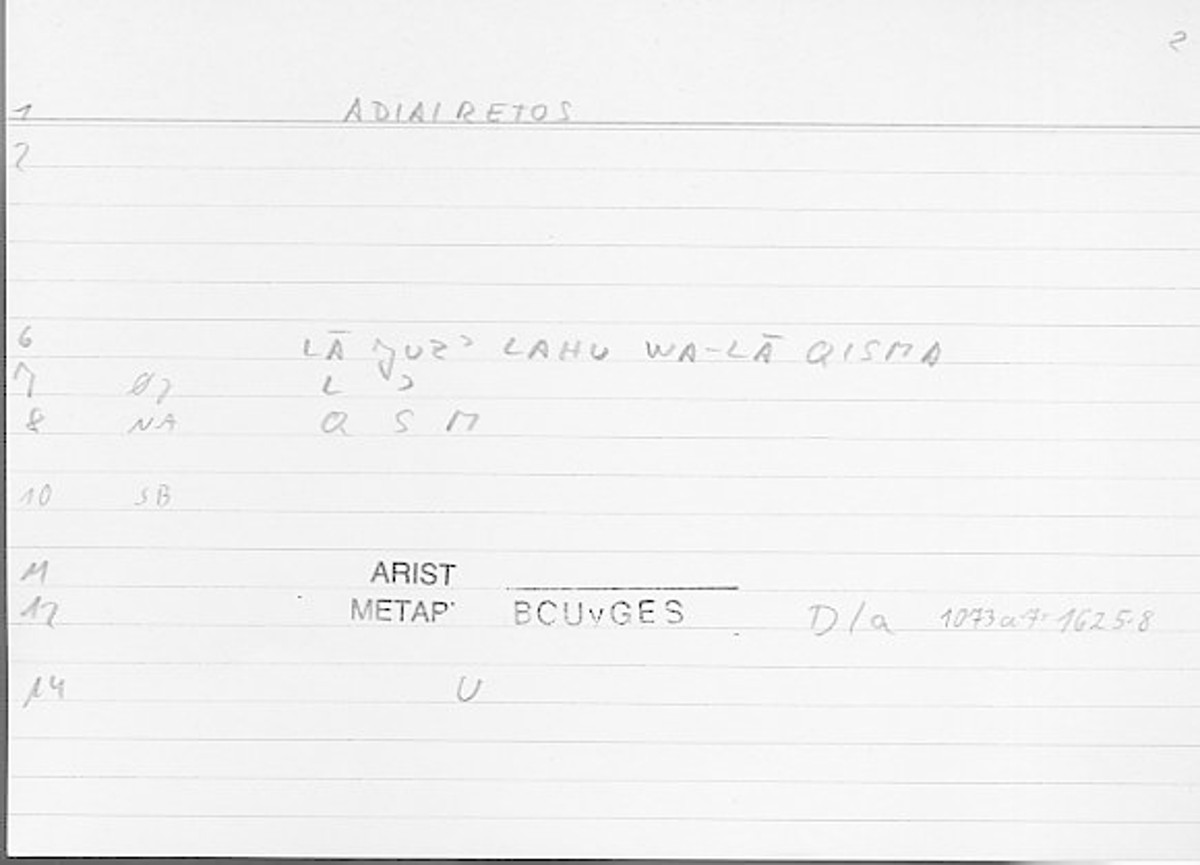 2
1 ADIAIRETOS
2
6 LĀ ǧUZʾ LAHU WA-LĀ QISMA
7 L ʾ
8 NA Q S M
10 SB
11 ARIST
12 METAP' BCUvGES D/a 1073a7: 1625.8
14 U